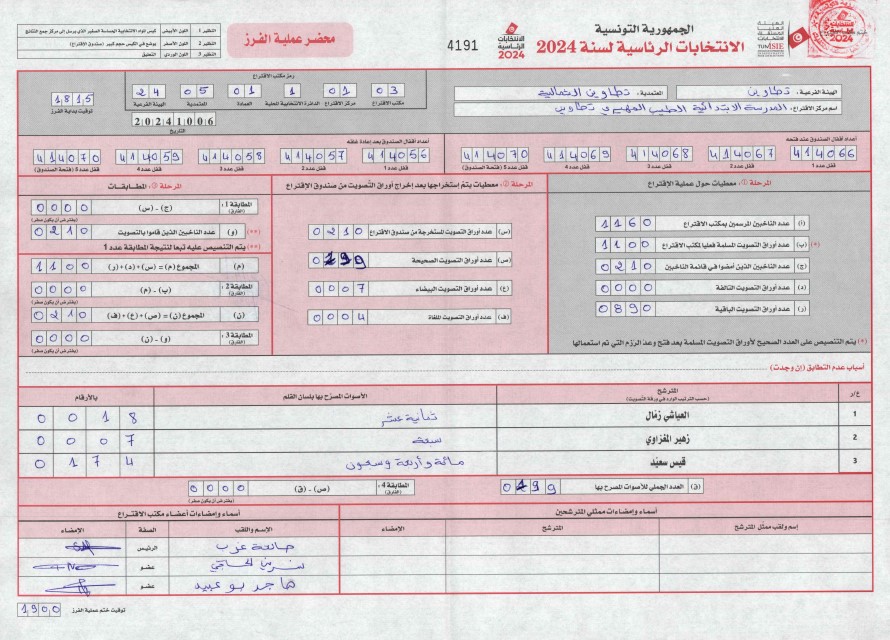 الجمهورية التونسية
الانتخابات الرئاسية لسنة 2024
الانتخابات الرئاسية 2024
4191
محضر عملية الفرز
النظير 1 اللون الأبيض
النظير 2 اللون الأسود يوضع في الكيس حجم كبير (صندوق الاقتراع)
النظير 3 اللون الوردي التعليق
الهيئة الفرعية: تطاوين
المعتمدية: تطاوين الشمالية
اسم مركز الاقتراع: المدرسة الابتدائية الطيب المهيري تطاوين
رمز مكتب الاقتراع
03 01 1 01 05 24
مكتب الاقتراع مركز الاقتراع الدائرة الانتخابية المحلية العمادة المعتمدية الهيئة الفرعية
20241006
التاريخ
1815
توقيت بداية الفرز
أعداد أقفال الصندوق عند فتحه
414066 414067 414068 414069 414070
قفل عدد 1 قفل عدد 2 قفل عدد 3 قفل عدد 4 قفل عدد 5 (فتحة الصندوق)
أعداد أقفال الصندوق بعد إعادة غلقه
414056 414057 414058 414059 414070
قفل عدد 1 قفل عدد 2 قفل عدد 3 قفل عدد 4 قفل عدد 5 (فتحة الصندوق)
المرحلة 1: معطيات حول عملية الاقتراع
(أ) عدد الناخبين المرسمين بمكتب الاقتراع 1160
(*) (ب) عدد أوراق التصويت المسلمة فعليا لمكتب الاقتراع 1100
(ج) عدد الناخبين الذين أمضوا في قائمة الناخبين 0210
(د) عدد أوراق التصويت التالفة 0000
(ر) عدد أوراق التصويت الباقية 0890
(*) يتم التنصيص على العدد الصحيح لأوراق التصويت المسلمة بعد فتح وعد الرزم التي تم استعمالها
المرحلة 2: معطيات يتم إستخراجها بعد إخراج أوراق التصويت من صندوق الاقتراع
(س) عدد أوراق التصويت المستخرجة من صندوق الاقتراع 0210
(ص) عدد أوراق التصويت الصحيحة 0199
(ع) عدد أوراق التصويت البيضاء 0007
(ف) عدد أوراق التصويت الملغاة 0004
المرحلة 3: المطابقات
المطابقة 1: (الفارق) (ج) - (س) 0000
(يفترض أن يكون صفر)
(**) (و) عدد الناخبين الذين قاموا بالتصويت 0210
(**) يتم التنصيص عليه تبعا لنتيجة المطابقة عدد 1
(م) المجموع (م) = (س) + (د) + (ر) 1100
المطابقة 2: (الفارق) (ب) - (م) 0000
(يفترض أن يكون صفر)
(ن) المجموع (ن) = (ص) + (ع) + (ف) 0210
المطابقة 3: (الفارق) (و) - (ن) 0000
(يفترض أن يكون صفر)
أسباب عدم التطابق (إن وجدت)
ع/ر المترشح (حسب الترتيب الوارد في ورقة التصويت) الأصوات المصرح بها بلسان القلم بالأرقام
1 العياشي زمال ثمانية عشر 0018
2 زهير المغزاوي سبعة 0007
3 قيس سعيّد مائة وأربعة وسبعون 0174
(ق) العدد الجملي للأصوات المصرح بها 0199
المطابقة 4: (الفارق) (ص) - (ق) 0000
(يفترض أن يكون صفر)
أسماء وإمضاءات ممثلي المترشحين
إسم ولقب ممثل المترشح المترشح الإمضاء
أسماء وإمضاءات أعضاء مكتب الاقتراع
الإسم واللقب الصفة الإمضاء
الرئيس
عضو
هاجر بو عبيد عضو
توقيت ختم عملية الفرز 1900